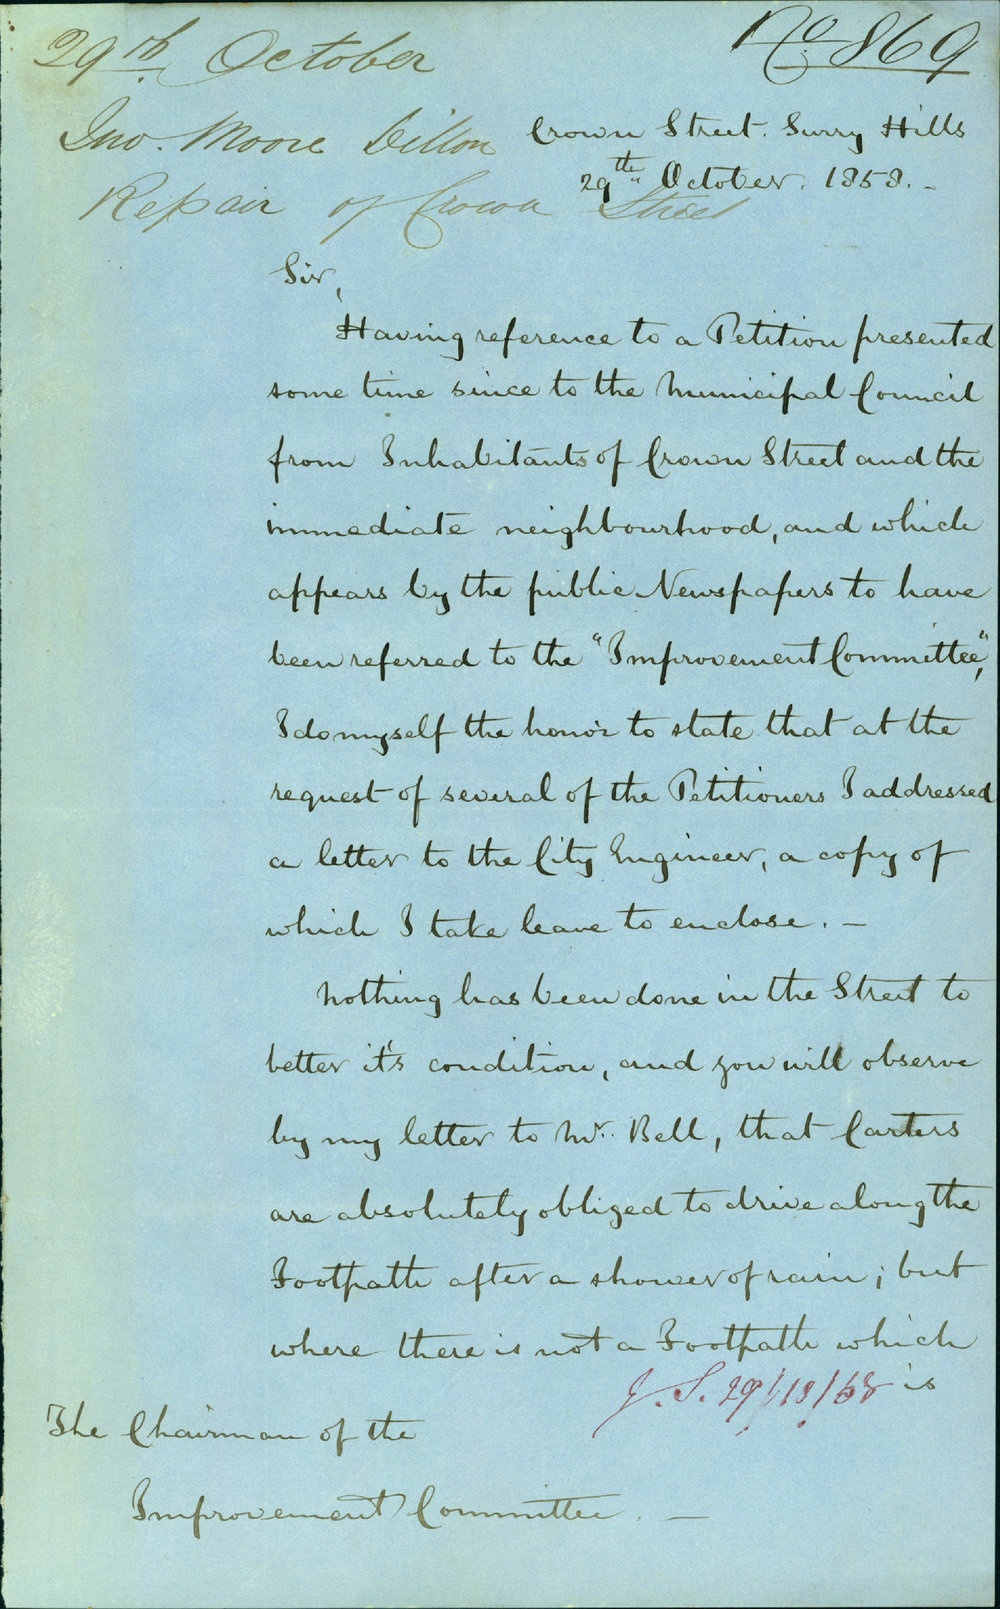 29th October
No 869
Jno. Moore Dillon
Repair of Crown Street
Crown Street. Surry Hills
29th October. 1858. -
Sir,
Having reference to a Petition presented
some time since to the Municipal Council
from Inhabitants of Crown Street and the
immediate neighbourhood, and which
appears by the public Newspapers to have
been referred to the "Improvement Committee",
I do myself the honor to state that at the
request of several of the Petitioners I addressed
a letter to the City Engineer, a copy of
which I take leave to enclose. -
Nothing has been done in the Street to
better it's condition, and you will observe
by my letter to Mr. Bell, that Carters
are absolutely obliged to drive along the
Footpath after a shower of rain; but
where there is not a Footpath which
is
J. S. 29/10/58
The Chairman of the
Improvement Committee. -